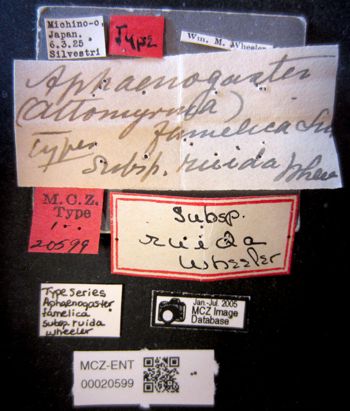 Michino-o.
Japan.
6.3.25
Silvestri
Type
Wm. M. Wheeler
Aphaenogaster
(Attomyrma)
famelica Sm
Types
Subsp. ruida Whee
M.C.Z.
Type
1-
20599
Subsp.
ruida
Wheeler
Type Series
Aphaenogaster
famelica
subsp. ruida
wheeler
Jan.-Jul. 2005
MCZ Image
Database
MCZ-ENT
00020599